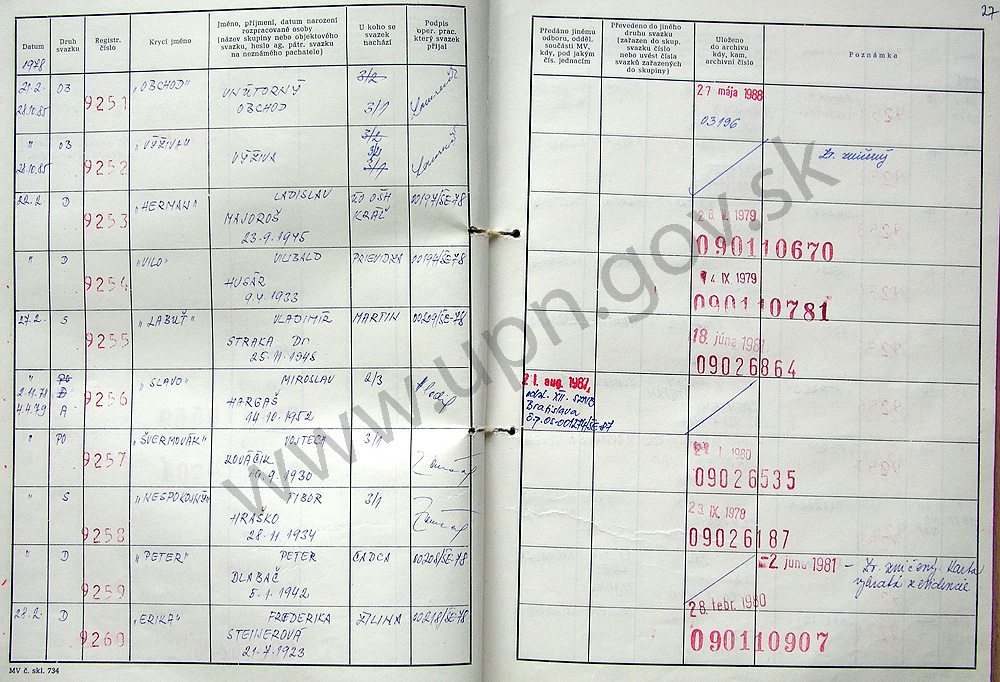 27
Datum
Druh
svazku
Registr.
číslo
Krycí jméno
Jméno, příjmení, datum narození
rozpracované osoby
(název skupiny nebo objektového
svazku, heslo ag. pátr. svazku
na neznámého pachatele)
U koho se
svazek
nachází
Podpis
oper. prac.
který svazek
přijal
Předáno jinému
odboru, odděl.
součásti MV,
kdy, pod jakým
čís. jednacím
Převedeno do jiného
druhu svazku
(zařazen do skup.
svazku číslo
nebo uvést čísla
svazků zařazených
do skupiny)
Uloženo
do archivu
kdy, kam,
archivní číslo
Poznámka
1978
21.2.
28.10.85
OB
9251
"OBCHOD"
VNÚTORNÝ
OBCHOD
3/2
3/1
27 mája 1988
03196
"
28.10.85
OB
9252
"VÝŽIVA"
VÝŽIVA
3/2
3/1
Zv. zničený
22.2.
D
9253
"HERMAN"
LADISLAV
MAJOROŠ
23.9.1945
KRÁĽ
00197/ŠE-78
1979
090110670
"
D
9254
"VILO"
VILIBALD
HUGÁR
9.4.1933
PRIEVIDZA
00194/ŠE-78
IX 1979
090110781
27.2.
S
9255
"LABUŤ"
VLADIMÍR
STRAKA Dr
25.11.1948
MARTIN
00209/ŠE-78
18. júna 1981
09026864
"
2.11.78
4.4.79
PO
D
A
9256
"SLAVO"
MIROSLAV
HARGAŠ
14.10.1952
2/3
21. aug. 1987,
odd. XII. SNVB
Bratislava
č.p. OS-001274/ŠE-87
"
PO
9257
"ŠVERMOVÁK"
VOJTECH
KOVÁČIK
19.9.1930
3/1
1 1980
09026535
"
S
9258
"NESPOKOJNÝ"
TIBOR
HRAŠKO
28.11.1934
3/1
23. IX. 1979
09026187
"
D
9259
"PETER"
PETER
DLABAČ
5.1.1942
ČADCA
00208/ŠE-78
-2. júna 1981 - Zv. zničený. Karta
vybratá z evidencie
28.2.
D
9260
"ERIKA"
FREDERIKA
STEINEROVÁ
21.7.1923
ŽILINA
00218/ŠE-78
28. febr. 1980
090110907
MV č. skl. 734
www.upn.gov.sk